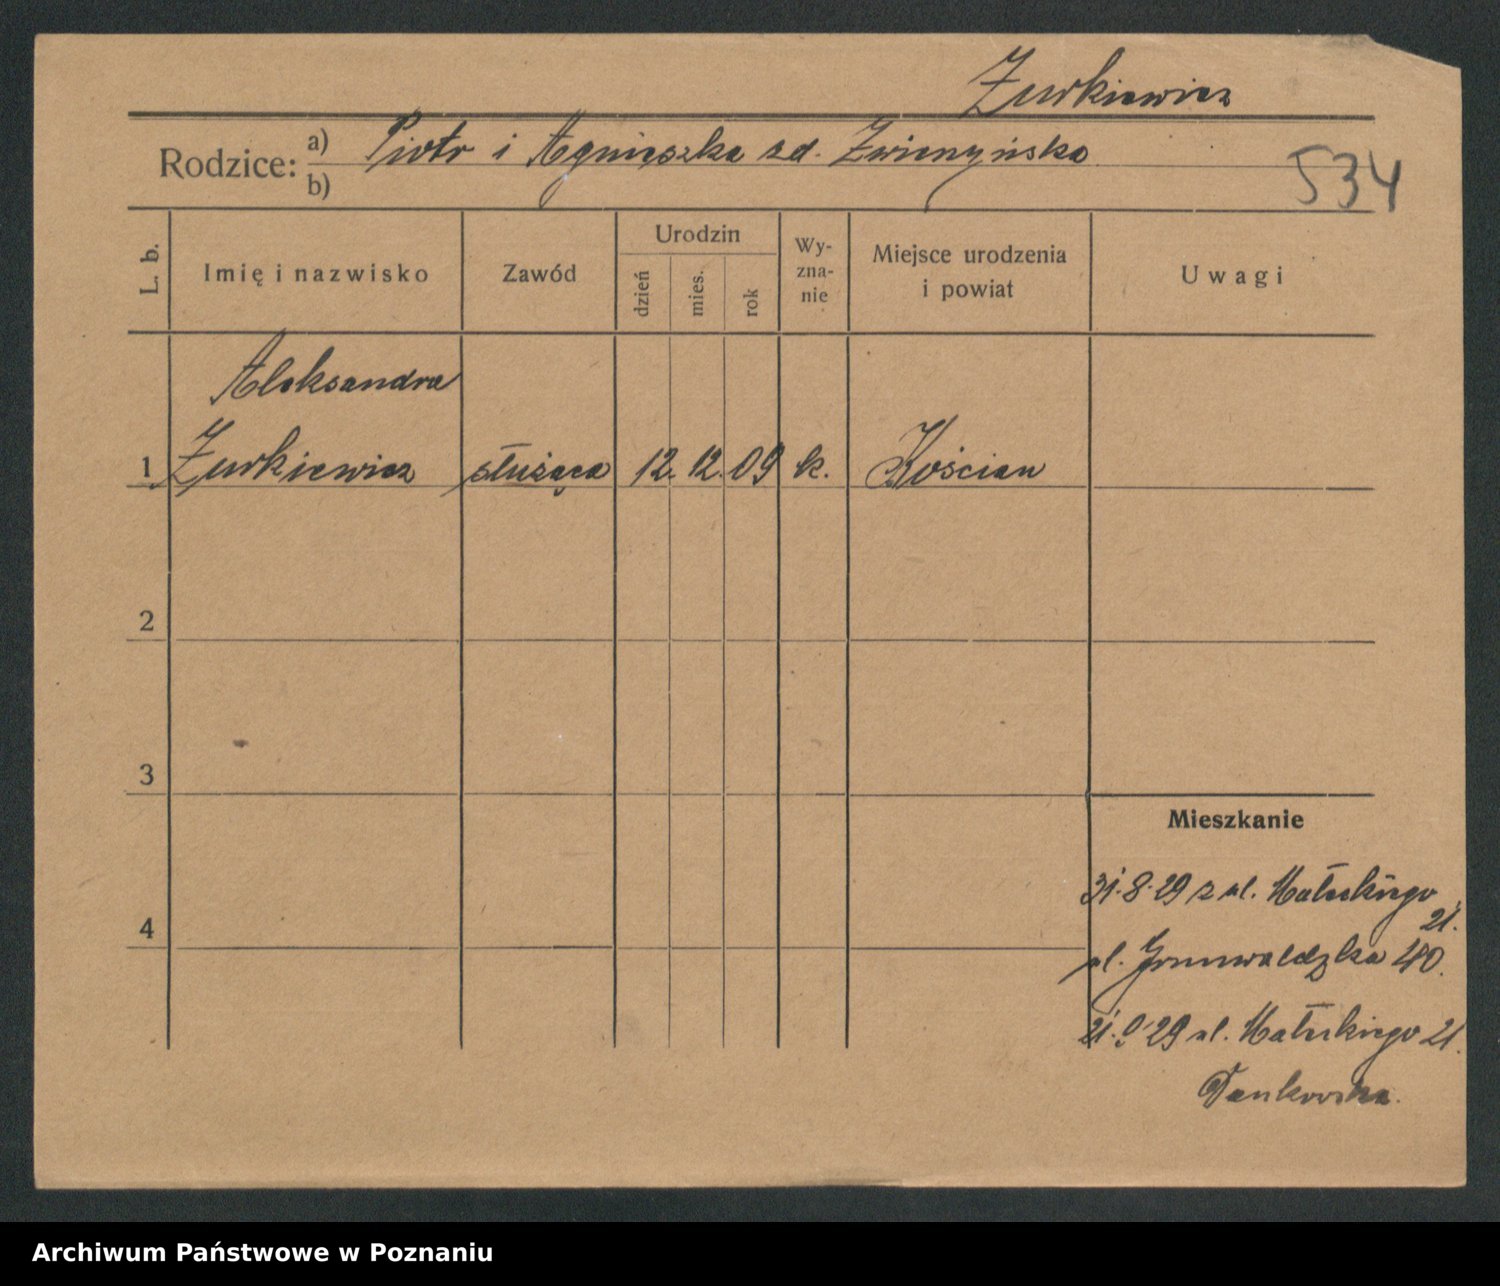 Żurkiewicz
Rodzice: a) Piotr i Agnieszka zd.
b)
534
L. b.
Imię i nazwisko
Zawód
Urodzin
dzień
mies.
rok
Wy-
zna-
nie
Miejsce urodzenia
i powiat
Uwagi
Aleksandra
1 Żurkiewicz służąca 12. 12. 09 k. Kościan
2
3
Mieszkanie
4
31.8.29 z ul. Małeckiego
21.
ul. Grunwaldzka 40.
21.9.29 ul. Małeckiego 21.
Dankowska.
Archiwum Państwowe w Poznaniu